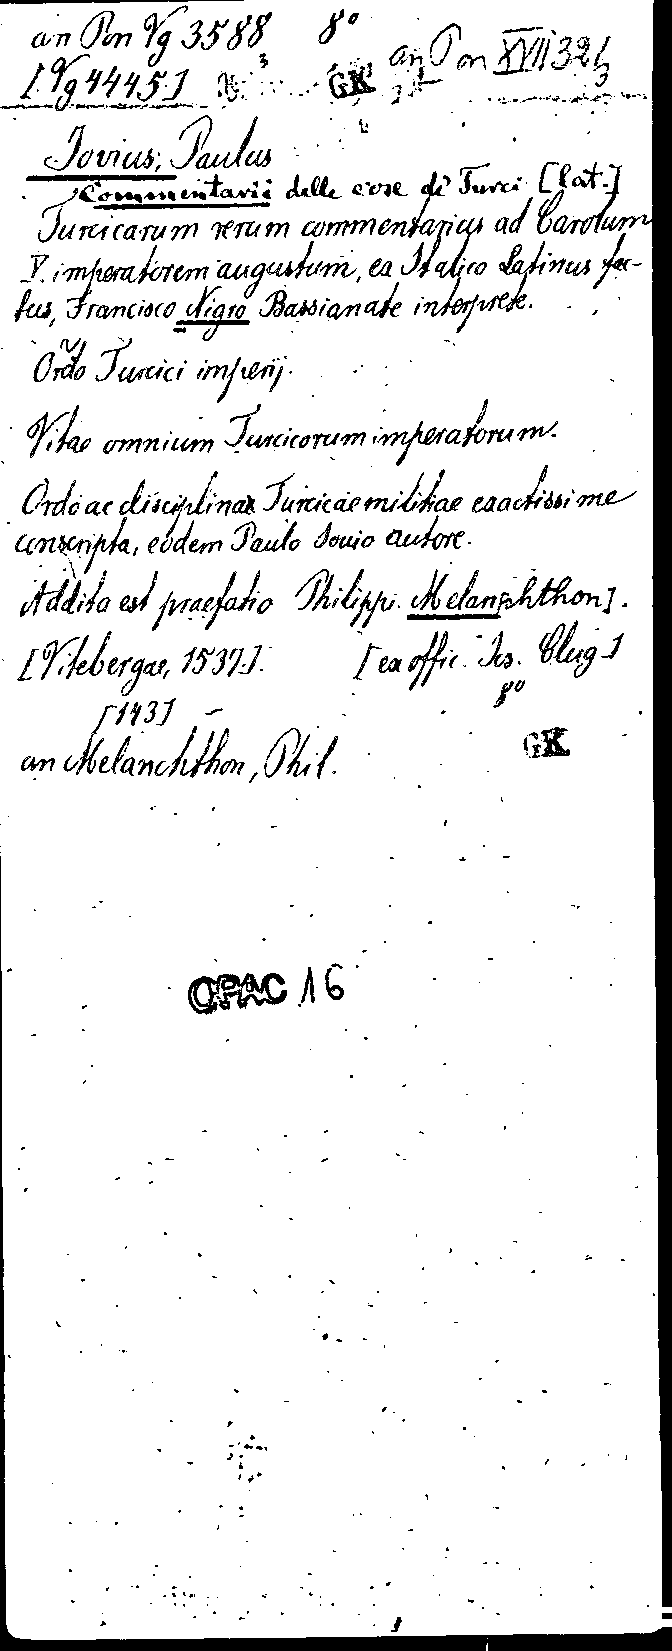 an Pon Vg 3588 8°
[Vg 4445] GK an Pon XVII 32b
Jovius, Paulus
Commentarii delle cose di Turci [lat.]
Turcicarum rerum commentarius ad Carolum
V. imperatorem augustum, ex Italico Latinus fac-
tus, Francisco Nigro Bassianate interprete.
Ordo Turcici imperij.
Vitae omnium Turcicorum imperatorum.
Ordo ac disciplinae Turcicae militiae exactissime
conscripta, eodem Paulo Iouio autore.
Addita est praefatio Philippi Melanchthon].
[Vitebergae, 1537.] [ex offic. Ios. Clug.]
8°
[143] –
an Melanchthon, Phil. GK
OPAC 16